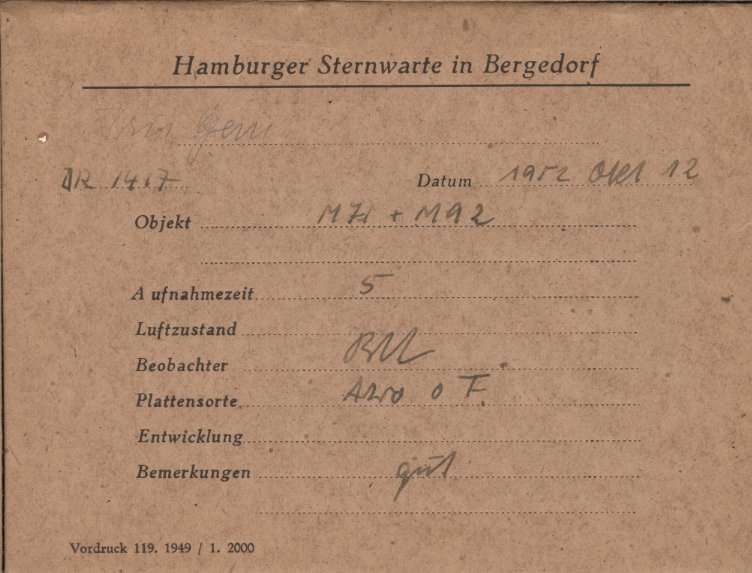 Hamburger Sternwarte in Bergedorf
1417 Datum 1952 Okt 12
Objekt M71 + M92
Aufnahmezeit 5
Luftzustand
Beobachter
Plattensorte o F
Entwicklung
Bemerkungen gut
Vordruck 119. 1949 / 1. 2000